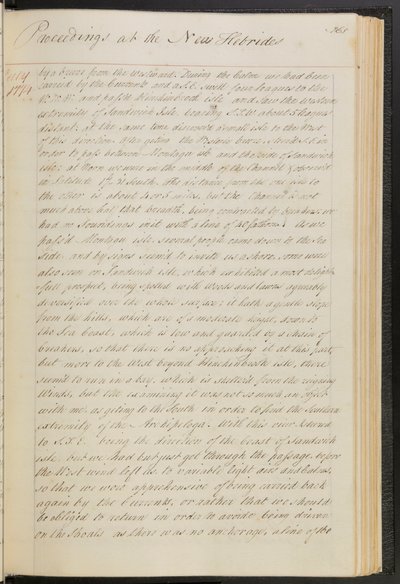 361
Proceedings at the New Hebrides
July
1774
by a breeze from the Westward. During the Calm we had been
carried by the Currents and a S.E. swell four leagues to the
W.N.W. and passt Hinchinbrook isle and saw the Western
extremity of Sandwich Isle, bearing S.S.W. about 5 leagues
distant; at the same time discovered a small isle to the West
of this direction. After geting the Westerly breeze, I steer'd S.E. in
order to pass between Montagu isle and the East side of Sandwich
isle; at Noon we were in the middle of the Channel & observed
in Latitude 17° 31' South. The distance from one isle to
the other is about 4 or 5 miles, but the Channel is not
much above half that breadth, being contracted by breakers; we
had no Soundings in it with a line of 40 fathoms. As we
pass'd Montagu isle several people came down to the Sea
Side and by signs seem'd to invite us a shore. Some were
also seen on Sandwich isle, which exhibited a most delight=
=full prospect, being spoted with Woods and lawns agreably
diversified over the whole surface; it hath a gentle slope
from the hills, which are of a moderate height, down to
the Sea Coast; which is low and guarded by a chain of
breakers, so that there is no approaching it at this part;
but more to the West beyond Hinchinbrook isle, there
seem'd to run in a bay, which is shelterd from the reigning
Winds, but the examining it was not so much an object
with me as geting to the South in order to find the Southern
extremity of the Archipelago. With this view I steerd
to S.S.E. being the direction of the coast of Sandwich
isle, but we had but just got through the passage, before
the West wind left us to variable light airs and Calms,
so that we were apprehensive of being carried back
again by the Currents, or rather that we should
be obliged to return in order to avoide being driven
on the Shoals as there was no anchorage, a line of 160